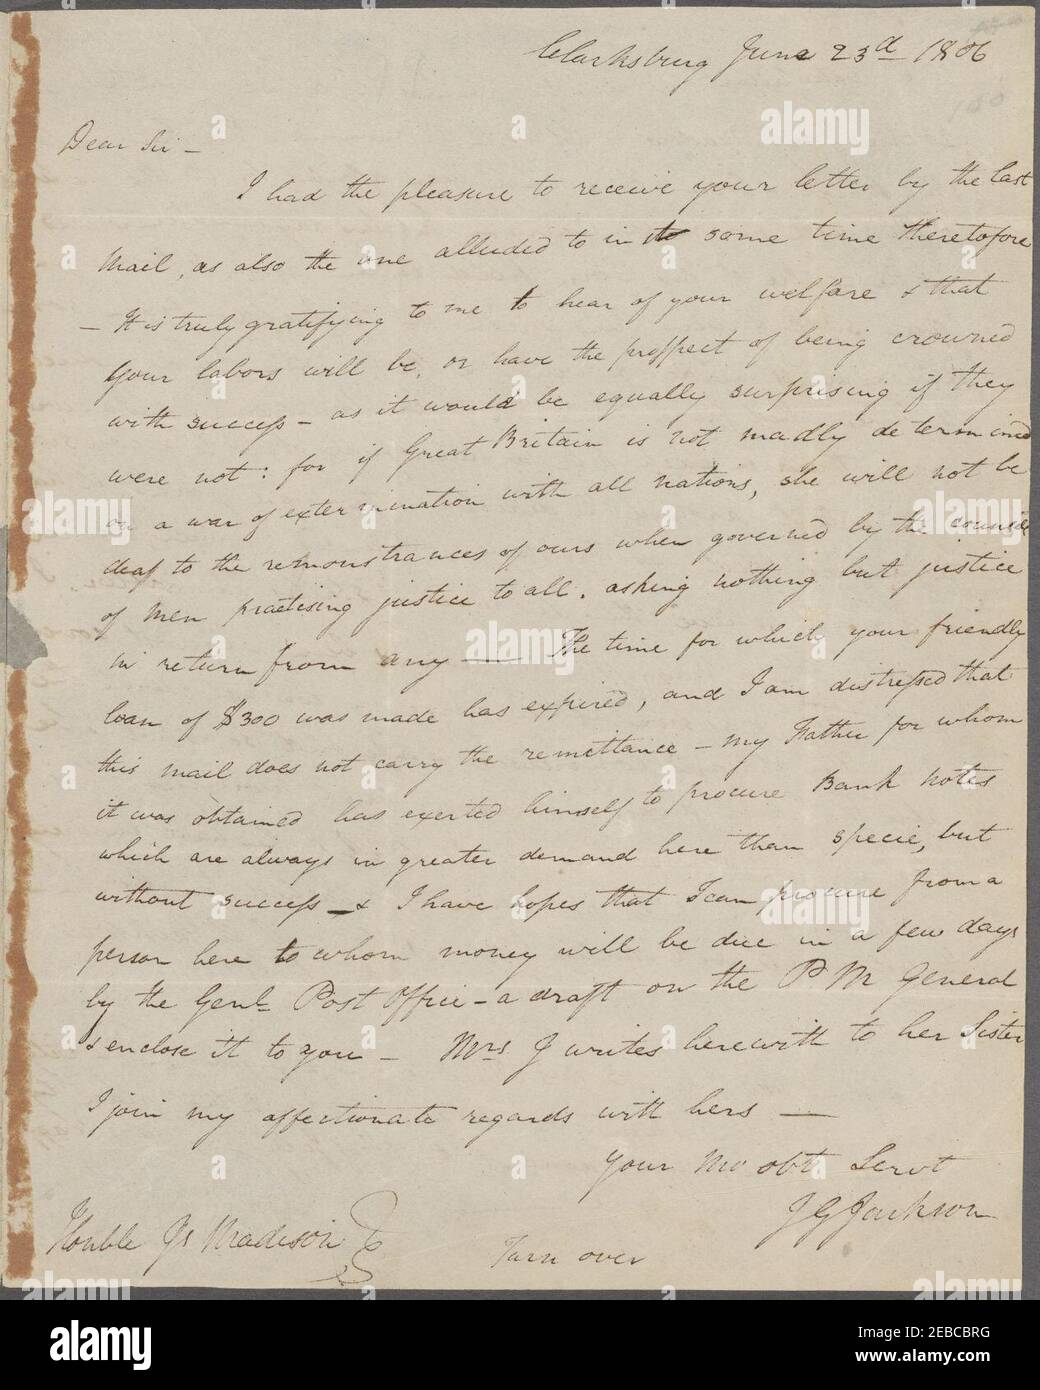 Clarksburg June 23d 1806
Dear Sir –
I had the pleasure to receive your letter by the last
Mail, as also the one alluded to in it some time theretofore
– It is truly gratifying to me to hear of your welfare & that
your labors will be, or have the prospect of being crowned
with success – as it would be equally surprising if they
were not: for if Great Britain is not madly determined
on a war of extermination with all nations, she will not be
deaf to the remonstrances of ours when governed by the councils
of men practising justice to all. asking nothing but justice
in return from any — The time for which your friendly
loan of $300 was made has expired, and I am distressed that
this mail does not carry the remittance – my Father for whom
it was obtained has exerted himself to procure Bank notes
which are always in greater demand here than specie, but
without success – & I have hopes that I can procure from a
person here to whom money will be due in a few days
by the Genl. Post Office – a draft on the P M General
& enclose it to you – Mrs J writes herewith to her Sister
I join my affectionate regards with hers —
your Mo obt Servt
J G Jackson
Honble Js Madison
Turn over
alamy
Image ID: 2EBCBRG
www.alamy.com